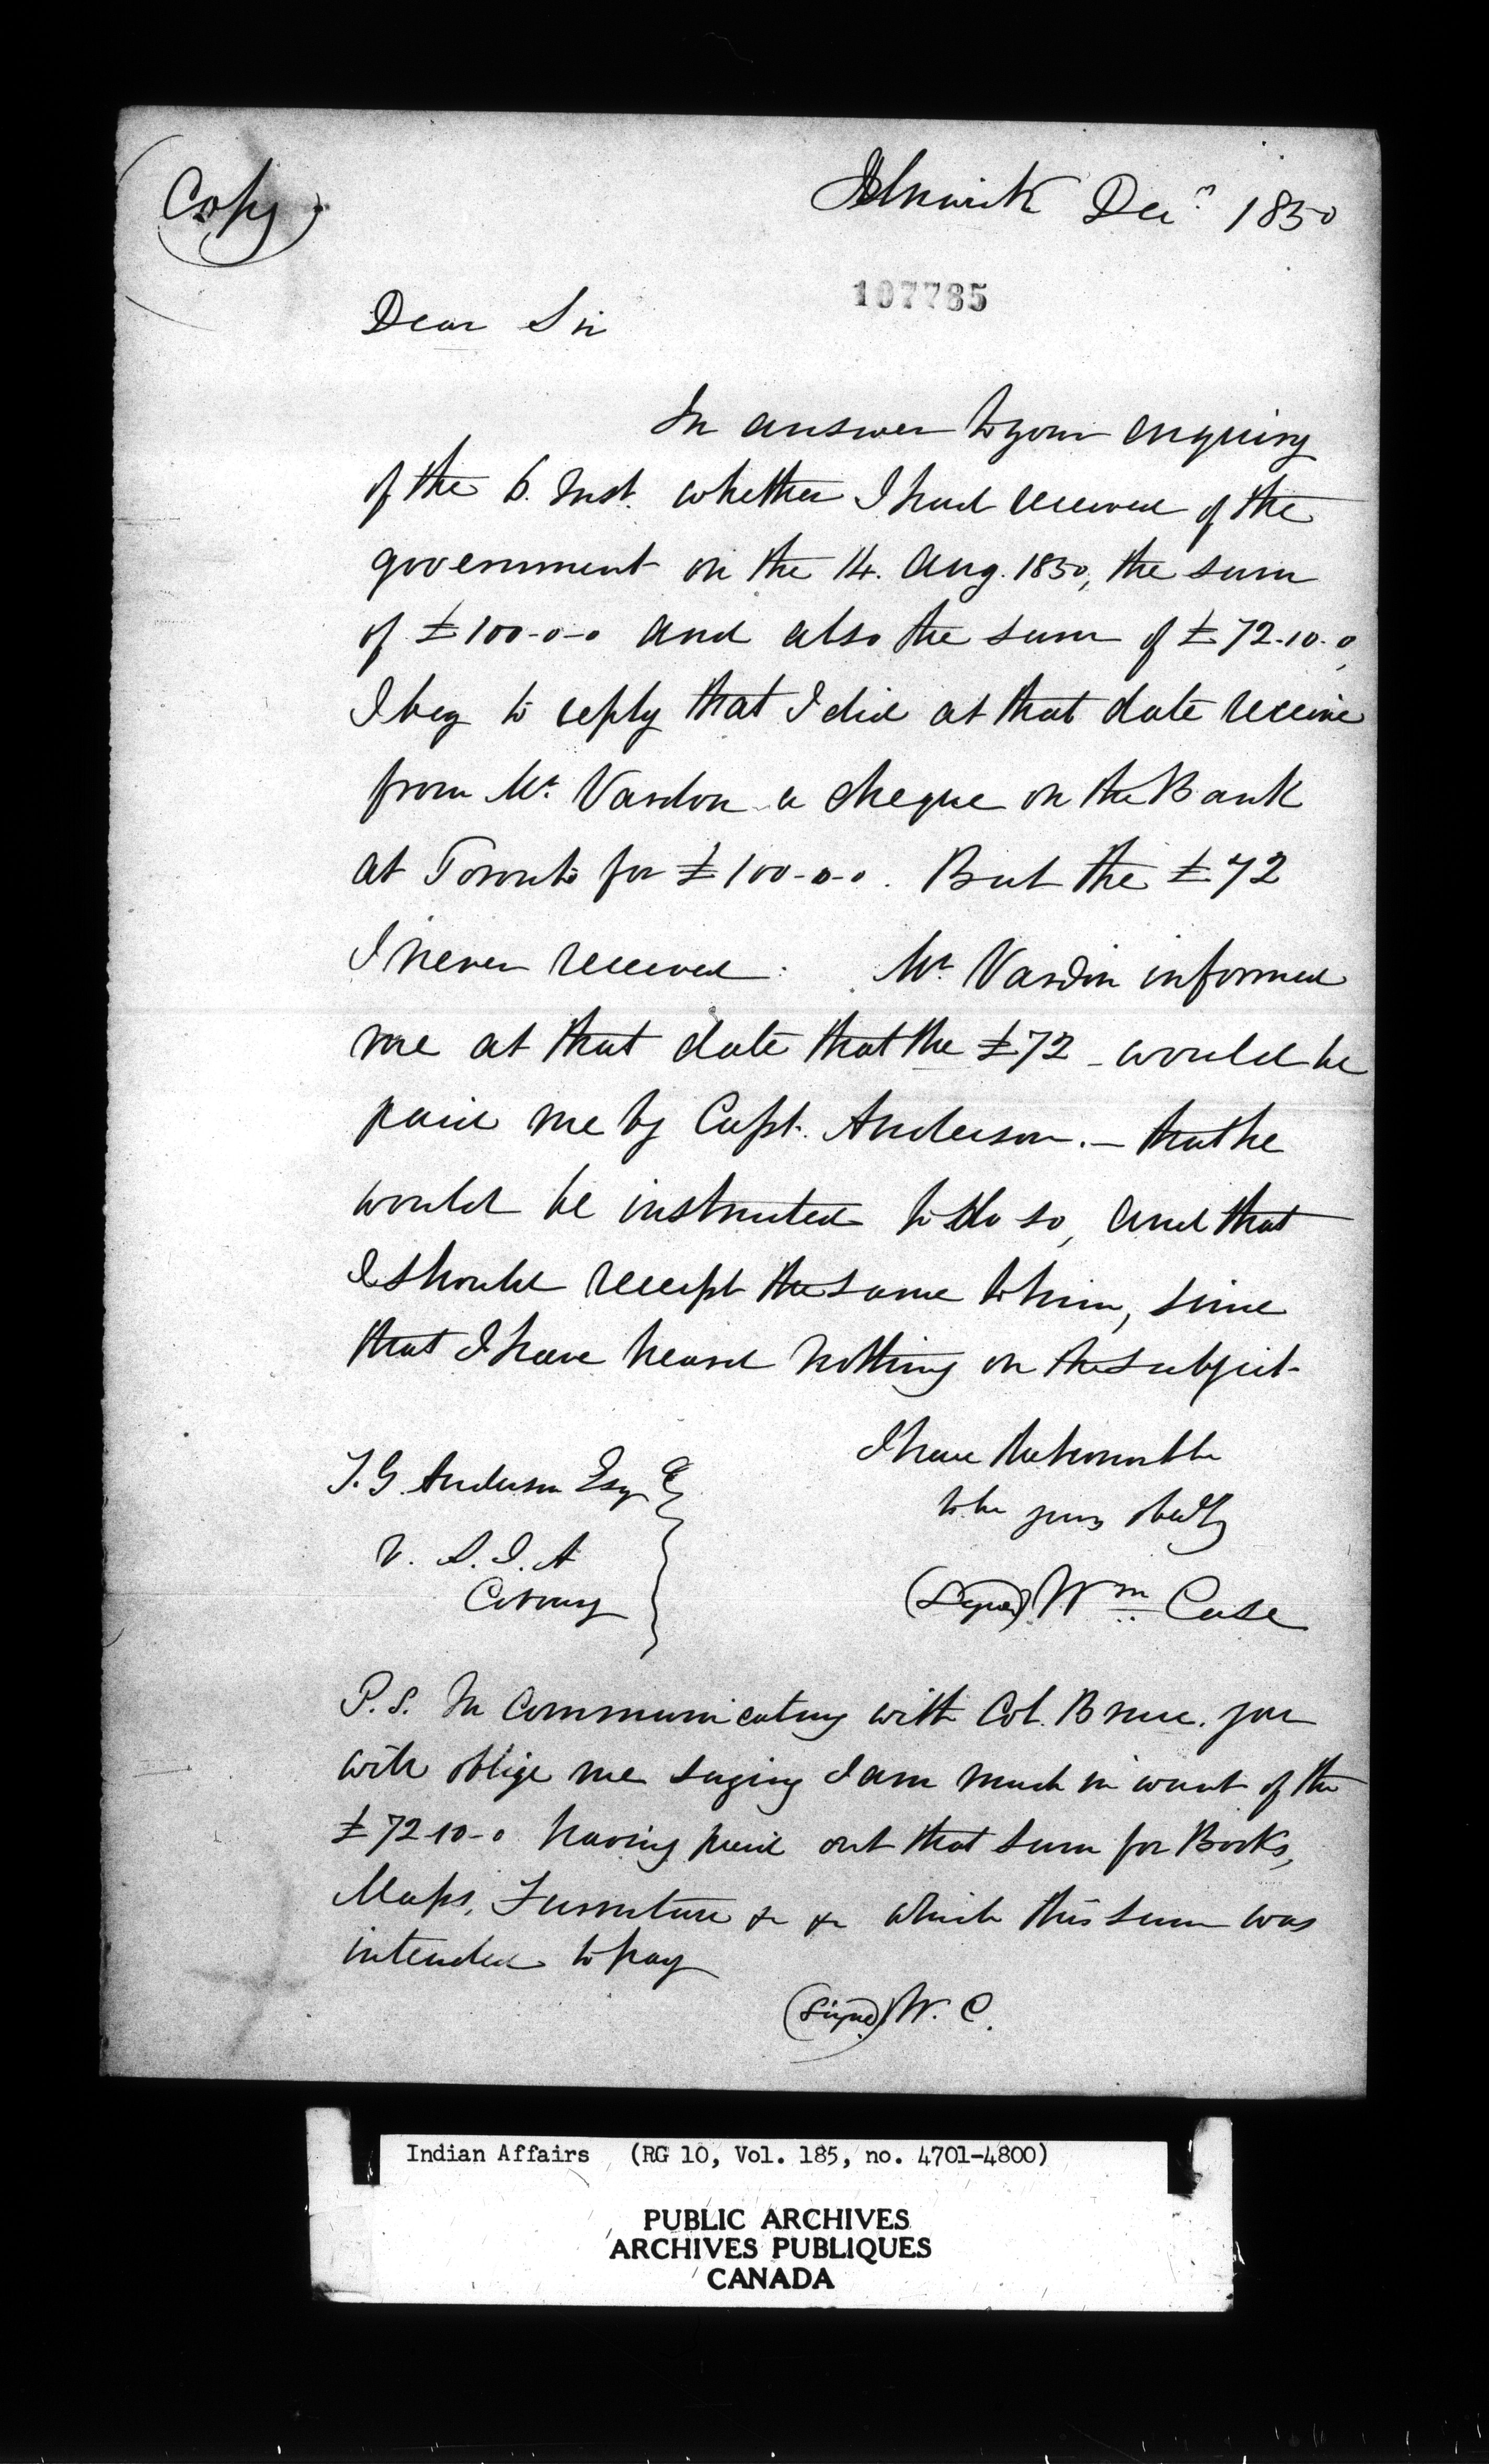 Copy
Alnwick Decr 1850
107785
Dear Sir
In answer to your enquiry
of the 6. Inst. whether I had received of the
government on the 14. Aug. 1850, the sum
of £100-0-0 and also the sum of £72-10-0,
I beg to reply that I did at that date receive
from Mr. Vardon a cheque on the Bank
at Toronto for £100-0-0. But the £72
I never received. Mr. Vardon informed
me at that date that the £72 - would be
paid me by Capt. Anderson. - that he
would be instructed to do so, and that
I should receipt the same to him, since
that I have heard nothing on the subject
I have the honor to be
to be yours obedtly
T. G. Anderson Esqr
V. S. I. A
Cobourg
(Signed) Wm Case
P.S. In communicating with Col. Bruce. you
will oblige me saying I am much in want of the
£72-10-0 having paid out that sum for Books,
Maps, Furniture &c &c which this sum was
intended to pay
(Signed) W. C.
Indian Affairs (RG 10, Vol. 185, no. 4701-4800)
PUBLIC ARCHIVES
ARCHIVES PUBLIQUES
CANADA